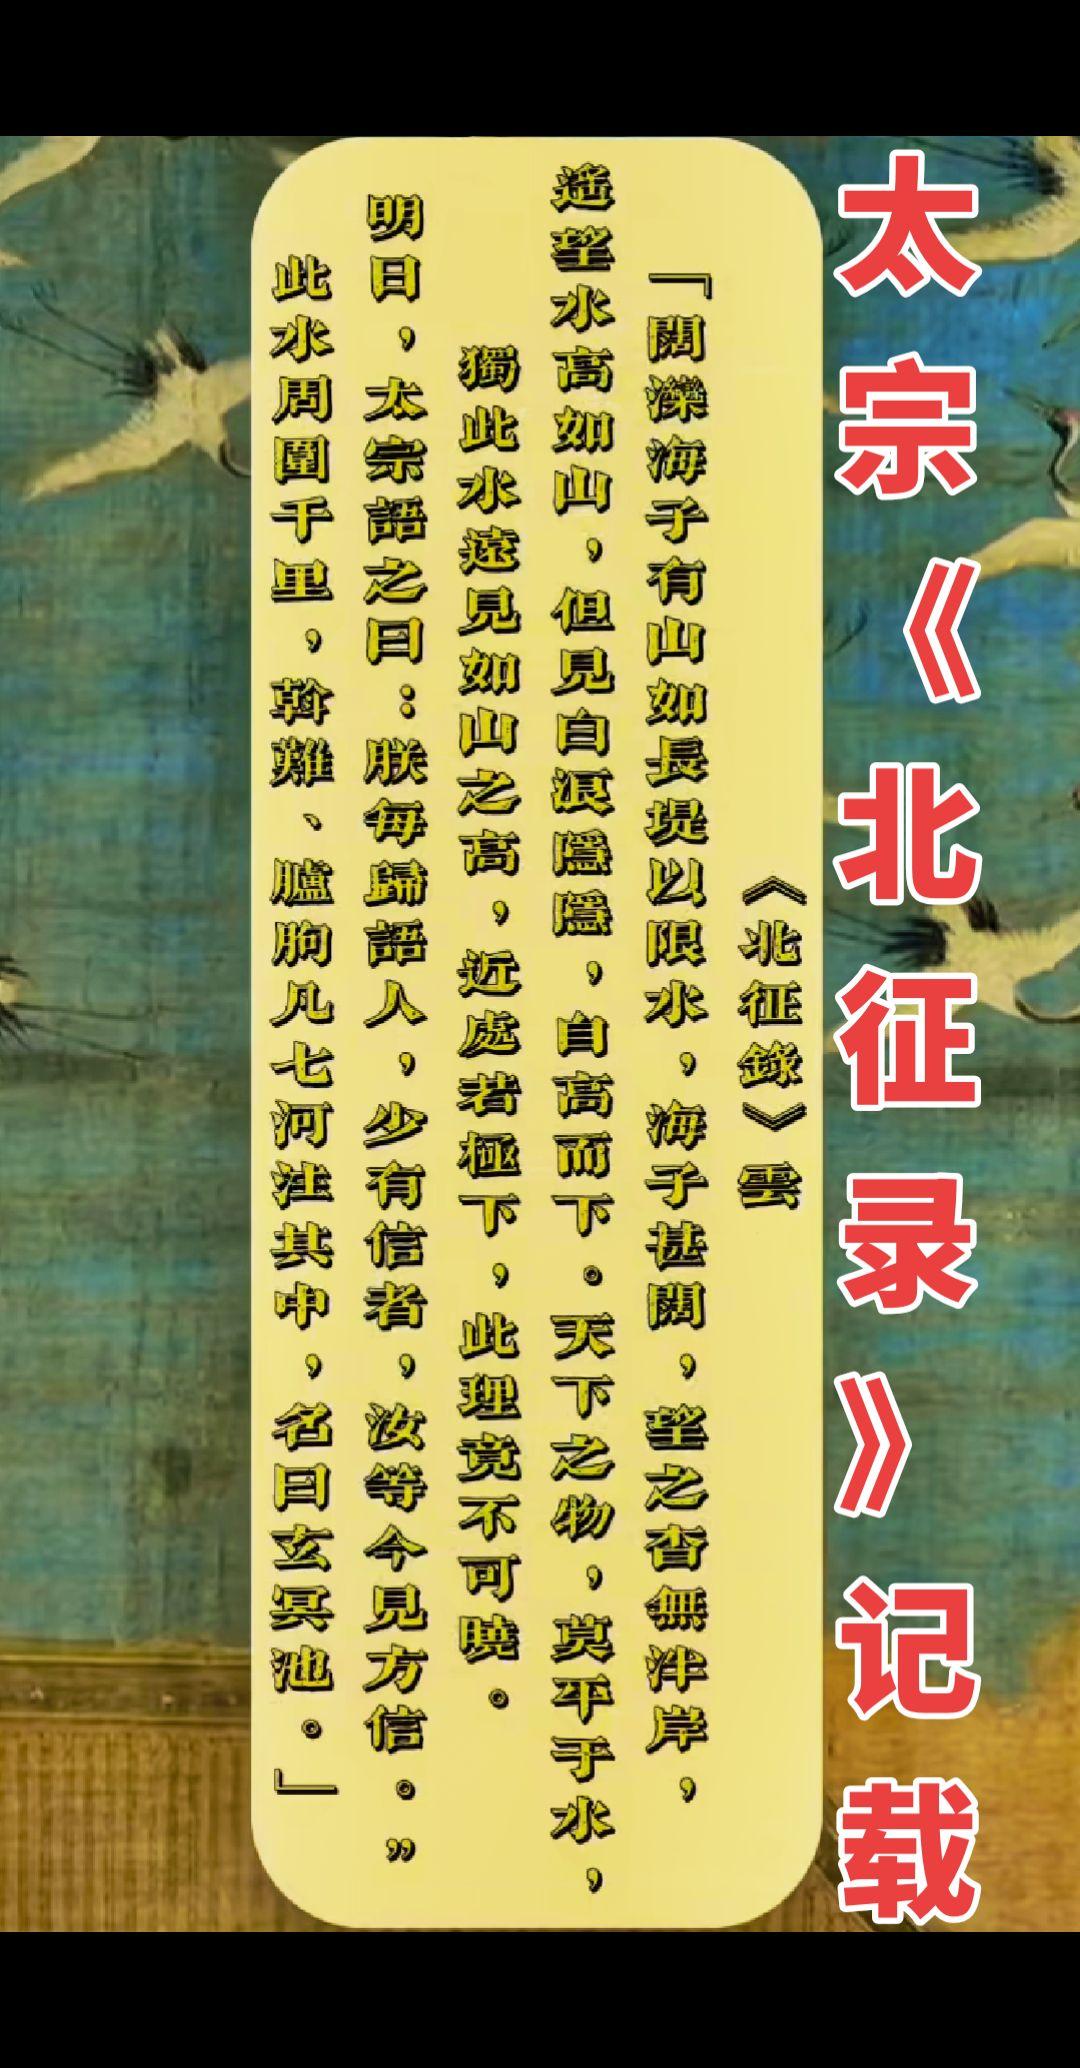 太宗《北征录》记载
《北征錄》雲
「闊濼海子有山如長堤以限水，海子甚闊，望之杳無泮岸，
遥望水高如山，但見白浪隱隱，自高而下。天下之物，莫平于水，
獨此水遠見如山之高，近處若極下，此理竟不可曉。
明日，太宗語之曰：朕每歸語人，少有信者，汝等今見方信。”
此水周圍千里，斡難、臚朐凡七河注其中，名曰玄冥池。」